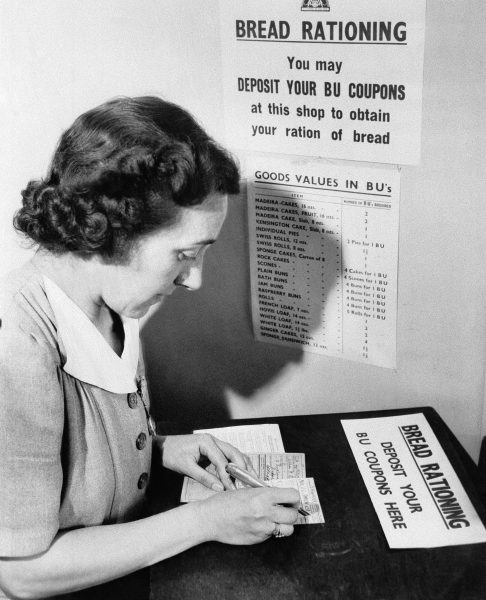 BREAD RATIONING
You may
DEPOSIT YOUR BU COUPONS
at this shop to obtain
your ration of bread
GOODS VALUES IN BU's
ITEM NUMBER OF BU's REQUIRED
MADEIRA CAKES, 16 ozs.
MADEIRA CAKES, FRUIT,
MADEIRA CAKE, Slab, 8 ozs.
KENSINGTON CAKE, Slab, 8 ozs.
INDIVIDUAL PIES 2 Pies for 1 BU
SWISS ROLLS, 12 ozs.
SWISS ROLLS, 8 ozs.
SPONGE CAKES, Carton of 8
ROCK CAKES 4 Cakes for 1 BU
SCONES 4 Scones for 1 BU
PLAIN BUNS 4 Buns for 1 BU
BATH BUNS 4 Buns for 1 BU
JAM BUNS 4 Buns for 1 BU
RASPBERRY BUNS 4 Buns for 1 BU
ROLLS Rolls for 1 BU
FRENCH LOAF, 7 ozs.
HOVIS LOAF, 14 ozs.
WHITE LOAF, 14 ozs.
WHITE LOAF,
GINGER CAKES,
SPONGE SANDWICH, 12 ozs.
BREAD RATIONING
DEPOSIT YOUR
BU COUPONS HERE